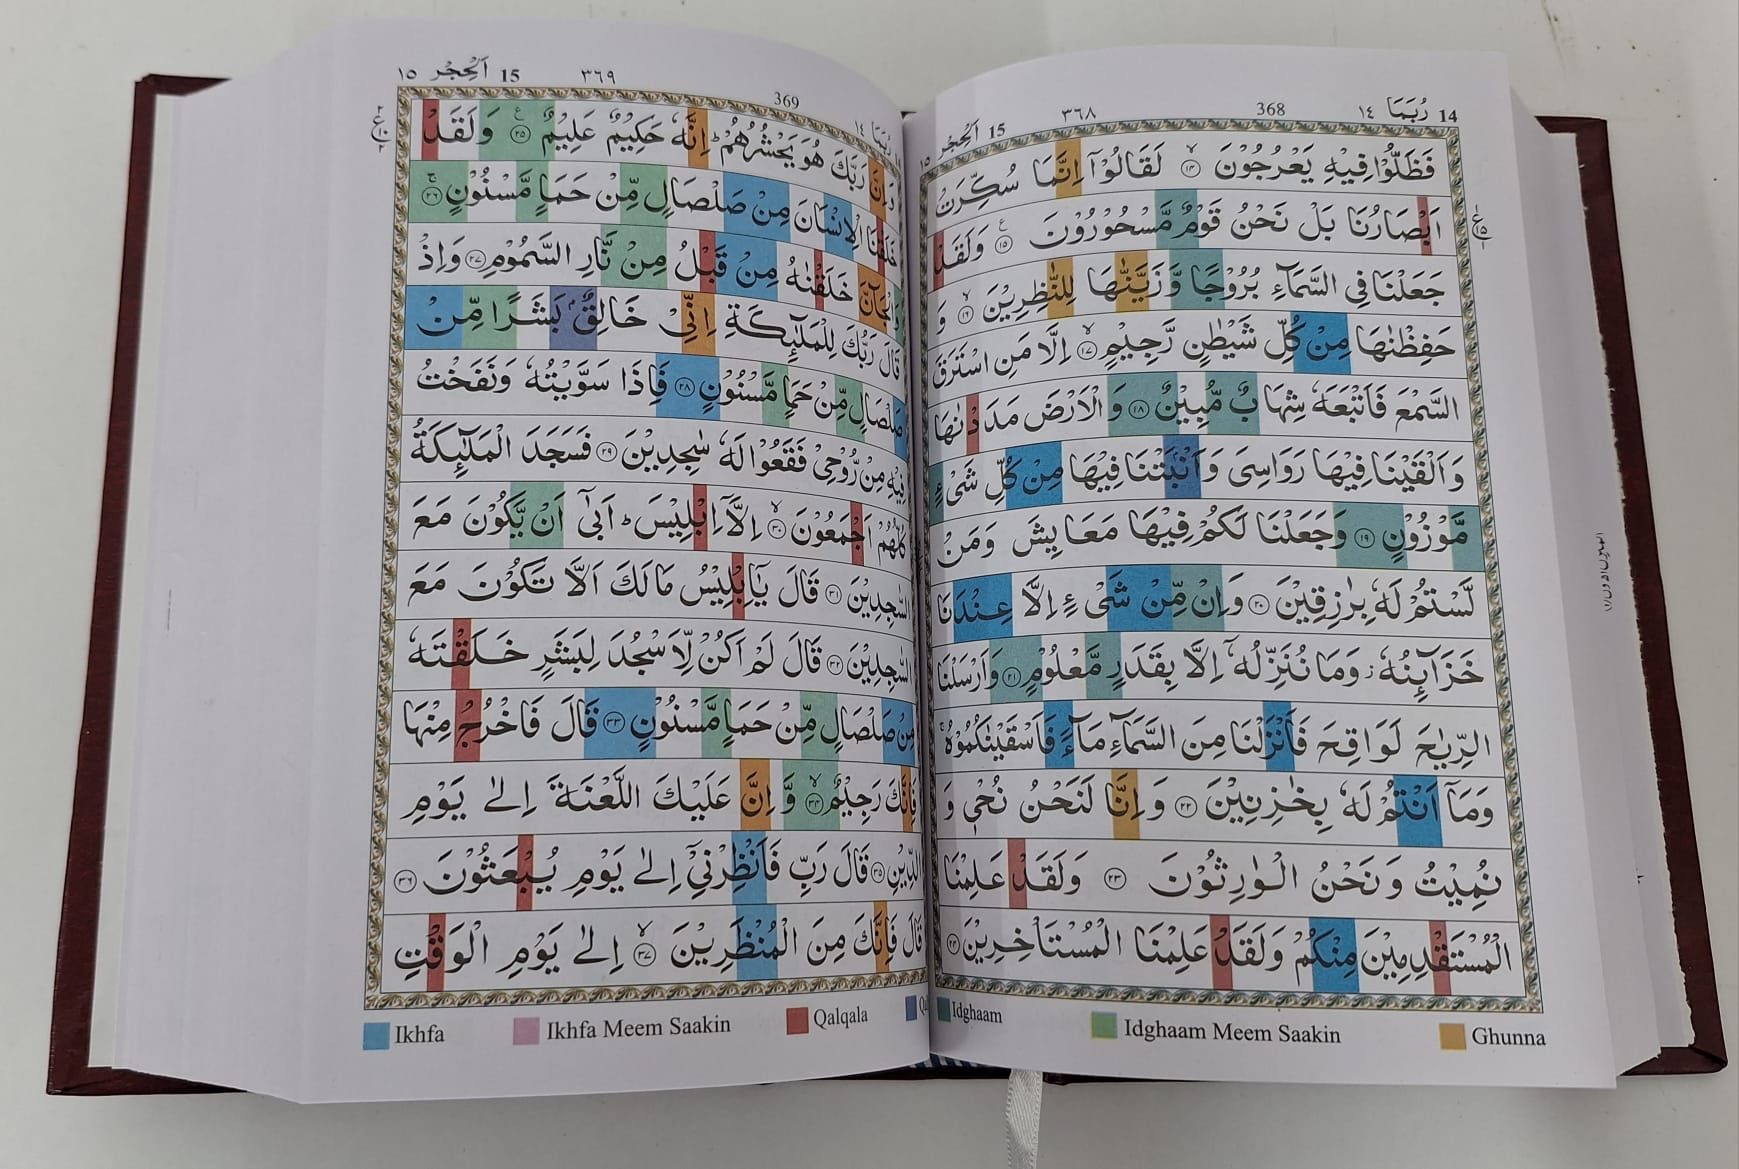 14 رُبَمَا ١٤ 368 ٣٦٨ 15 اَلْحِجْر ١٥
فَظَلُّوْا فِيْهِ يَعْرُجُوْنَ ۙ‏﴿۱۴﴾ لَقَالُوْۤا اِنَّمَا سُكِّرَتْ
اَبْصَارُنَا بَلْ نَحْنُ قَوْمٌ مَّسْحُوْرُوْنَ ﴿۱۵﴾ وَلَقَدْ
جَعَلْنَا فِى السَّمَآءِ بُرُوْجًا وَّ زَيَّنّٰهَا لِلنّٰظِرِيْنَ ۙ‏﴿۱۶﴾ وَ
حَفِظْنٰهَا مِنْ كُلِّ شَيْطٰنٍ رَّجِيْمٍ ۙ‏﴿۱۷﴾ اِلَّا مَنِ اسْتَرَقَ
السَّمْعَ فَاَتْبَعَهٗ شِهَابٌ مُّبِيْنٌ ﴿۱۸﴾ وَ الْاَرْضَ مَدَدْنٰهَا
وَاَلْقَيْنَا فِيْهَا رَوَاسِىَ وَاَنْۢبَتْنَا فِيْهَا مِنْ كُلِّ شَىْءٍ
مَّوْزُوْنٍ ﴿۱۹﴾ وَجَعَلْنَا لَكُمْ فِيْهَا مَعَايِشَ وَمَنْ
لَّسْتُمْ لَهٗ بِرٰزِقِيْنَ ﴿۲۰﴾ وَاِنْ مِّنْ شَىْءٍ اِلَّا عِنْدَنَا
خَزَآئِنُهٗ وَمَا نُنَزِّلُهٗۤ اِلَّا بِقَدَرٍ مَّعْلُوْمٍ ﴿۲۱﴾ وَاَرْسَلْنَا
الرِّيٰحَ لَوَاقِحَ فَاَنْزَلْنَا مِنَ السَّمَآءِ مَآءً فَاَسْقَيْنٰكُمُوْهُ ۚ
وَمَاۤ اَنْتُمْ لَهٗ بِخٰزِنِيْنَ ﴿۲۲﴾ وَ اِنَّا لَنَحْنُ نُحْىٖ وَ
نُمِيْتُ وَنَحْنُ الْوٰرِثُوْنَ ﴿۲۳﴾ وَلَقَدْ عَلِمْنَا
الْمُسْتَقْدِمِيْنَ مِنْكُمْ وَلَقَدْ عَلِمْنَا الْمُسْتَاْخِرِيْنَ ﴿۲۴﴾
Idghaam Idghaam Meem Saakin Ghunna
رُبَمَا ١٤ 369 ٣٦٩ 15 اَلْحِجْر ١٥
وَاِنَّ رَبَّكَ هُوَ يَحْشُرُهُمْ ؕ اِنَّهٗ حَكِيْمٌ عَلِيْمٌ ﴿۲۵﴾ وَلَقَدْ
خَلَقْنَا الْاِنْسَانَ مِنْ صَلْصَالٍ مِّنْ حَمَاٍ مَّسْنُوْنٍ ۚ‏﴿۲۶﴾
وَالْجَآنَّ خَلَقْنٰهُ مِنْ قَبْلُ مِنْ نَّارِ السَّمُوْمِ ﴿۲۷﴾ وَاِذْ
قَالَ رَبُّكَ لِلْمَلٰٓئِكَةِ اِنِّىْ خَالِقٌۢ بَشَرًا مِّنْ
صَلْصَالٍ مِّنْ حَمَاٍ مَّسْنُوْنٍ ﴿۲۸﴾ فَاِذَا سَوَّيْتُهٗ وَنَفَخْتُ
فِيْهِ مِنْ رُّوْحِىْ فَقَعُوْا لَهٗ سٰجِدِيْنَ ﴿۲۹﴾ فَسَجَدَ الْمَلٰٓئِكَةُ
كُلُّهُمْ اَجْمَعُوْنَ ۙ‏﴿۳۰﴾ اِلَّاۤ اِبْلِيْسَ ؕ اَبٰٓى اَنْ يَّكُوْنَ مَعَ
السّٰجِدِيْنَ ﴿۳۱﴾ قَالَ يٰۤاِبْلِيْسُ مَا لَكَ اَلَّا تَكُوْنَ مَعَ
السّٰجِدِيْنَ ﴿۳۲﴾ قَالَ لَمْ اَكُنْ لِّاَسْجُدَ لِبَشَرٍ خَلَقْتَهٗ
مِنْ صَلْصَالٍ مِّنْ حَمَاٍ مَّسْنُوْنٍ ﴿۳۳﴾ قَالَ فَاخْرُجْ مِنْهَا
فَاِنَّكَ رَجِيْمٌ ۙ‏﴿۳۴﴾ وَّ اِنَّ عَلَيْكَ اللَّعْنَةَ اِلٰى يَوْمِ
الدِّيْنِ ﴿۳۵﴾ قَالَ رَبِّ فَاَنْظِرْنِىْۤ اِلٰى يَوْمِ يُبْعَثُوْنَ ﴿۳۶﴾
قَالَ فَاِنَّكَ مِنَ الْمُنْظَرِيْنَ ۙ‏﴿۳۷﴾ اِلٰى يَوْمِ الْوَقْتِ
Ikhfa Ikhfa Meem Saakin Qalqala